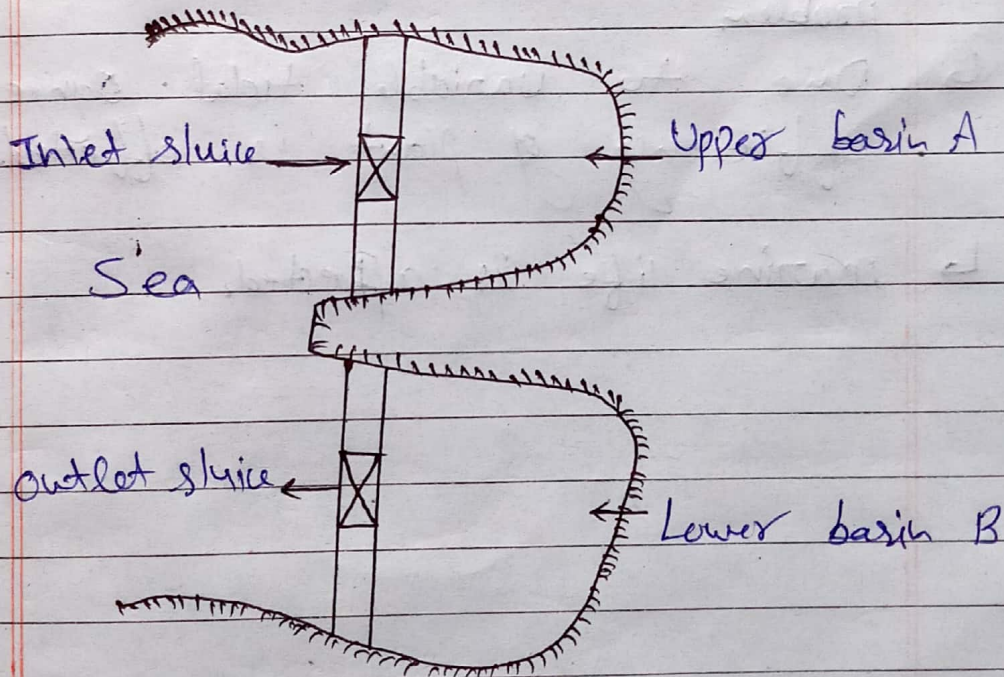 Inlet sluice
Upper basin A
Sea
outlet sluice
Lower basin B